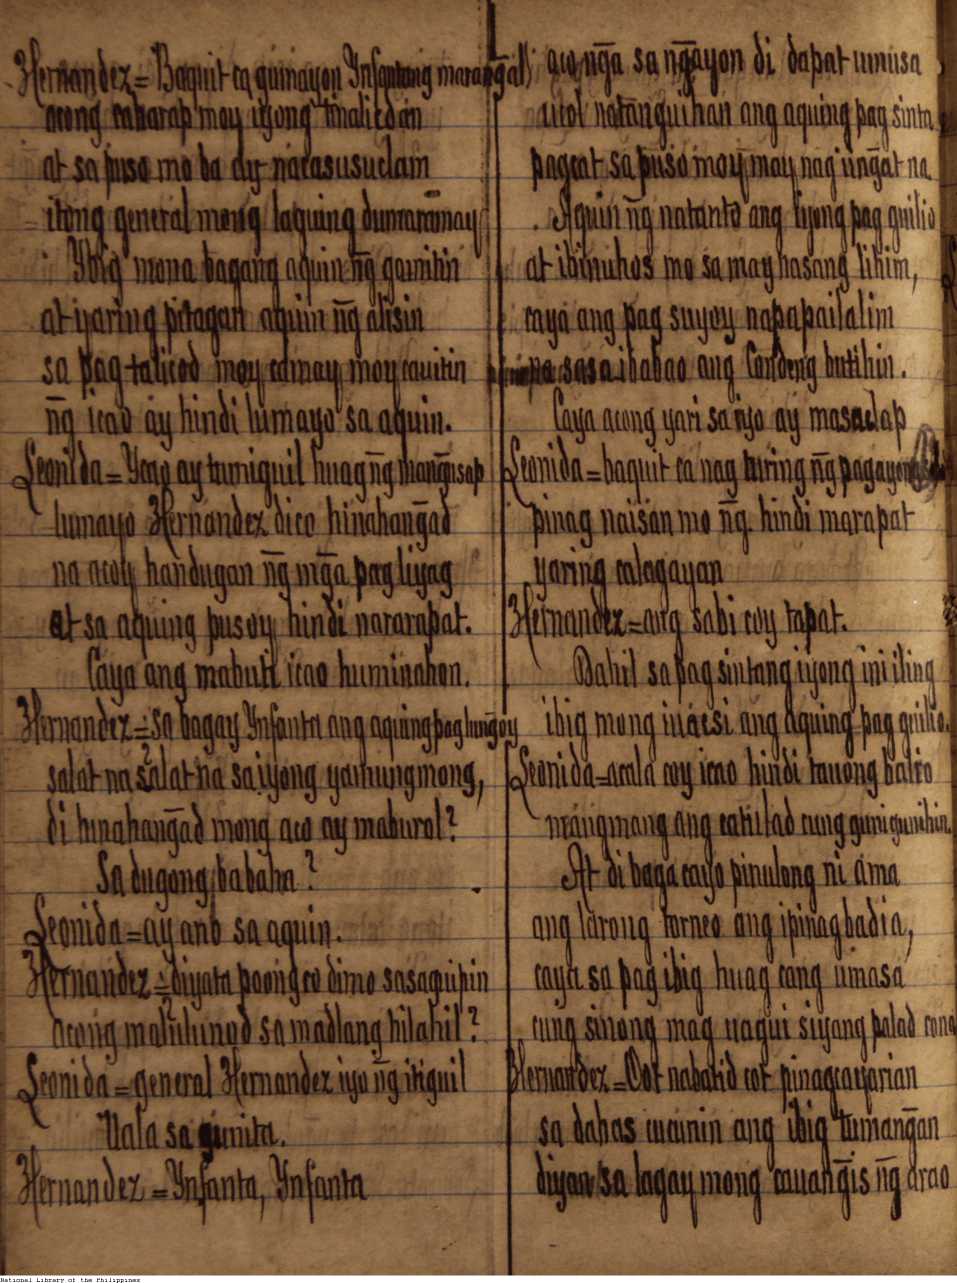 Hernandez = Baquit ca guinayon Ynfantang marangal
acong caharap moy iyong tinalicdan
at sa puso mo ba ay nacasusuclam
itong general mong laguing dumaramay
Ybig mona bagang aquin n̄g gamitin
at yaring pitagan aquin n̄g alisin
sa pag-talicod moy camay moy cauitin
n̄g icao ay hindi lumayo sa aquin.
Leonida = Ycao ay tumiguil huag n̄g man̄gisap
lumayo Hernandez dico hinahan̄gad
na acoy handugan n̄g mn̄ga pagliyag
at sa aquing pusoy hindi nararapat.
Caya ang mabuti icao huminahon.
Hernandez = sa bagay Ynfanta ang aquing pag lun̄goy
salat na salat na sa iyong yamungmong,
di hinahan̄gad mong aco ay maburol?
Sa dugong bababa?
Leonida = ay ano sa aquin.
Hernandez = diyata poong co dimo sasaguipin
acong malulunod sa madlang hilahil?
Leonida = general Hernandez iyo n̄g itiguil
Uala sa gunita.
Hernandez = Ynfanta, Ynfanta
aco n̄ga sa n̄gayon di dapat umusa
utol natanguihan ang aquing pag sinta
pagcat sa puso moy may nag iin̄gat na
Aquin n̄g natanto ang iyong pag guilio
at ibinuhos mo sa may hasang lihim,
caya ang pag suyoy napapailalim
na sasaibabao ang Condeng butihin.
Caya acong yari sa iyo ay masaclap
Leonida = baquit ca nag turing n̄g
pinag naisan mo n̄g hindi marapat
yaring calagayan
Hernandez = ang sabi coy tapat.
Dahil sa pag sintang iyong ini iling
ibig mong inicsi ang aquing pag guilio.
Leonida = acala coy icao hindi tauong balio
mangmang ang catulad cung gunigunihin
At di baga cayo pinulong ni ama
ang larong torneo ang ipinagbadia,
caya sa pag ibig huag cang umasa
cung sinong mag uagui siyang palad cona
Hernandez = Oot nabatid cot pinagcayarian
sa dahas cucunin ang ibig tuman̄gan
diyan sa lagay mong cauan̄gis n̄g arao
National Library of the Philippines